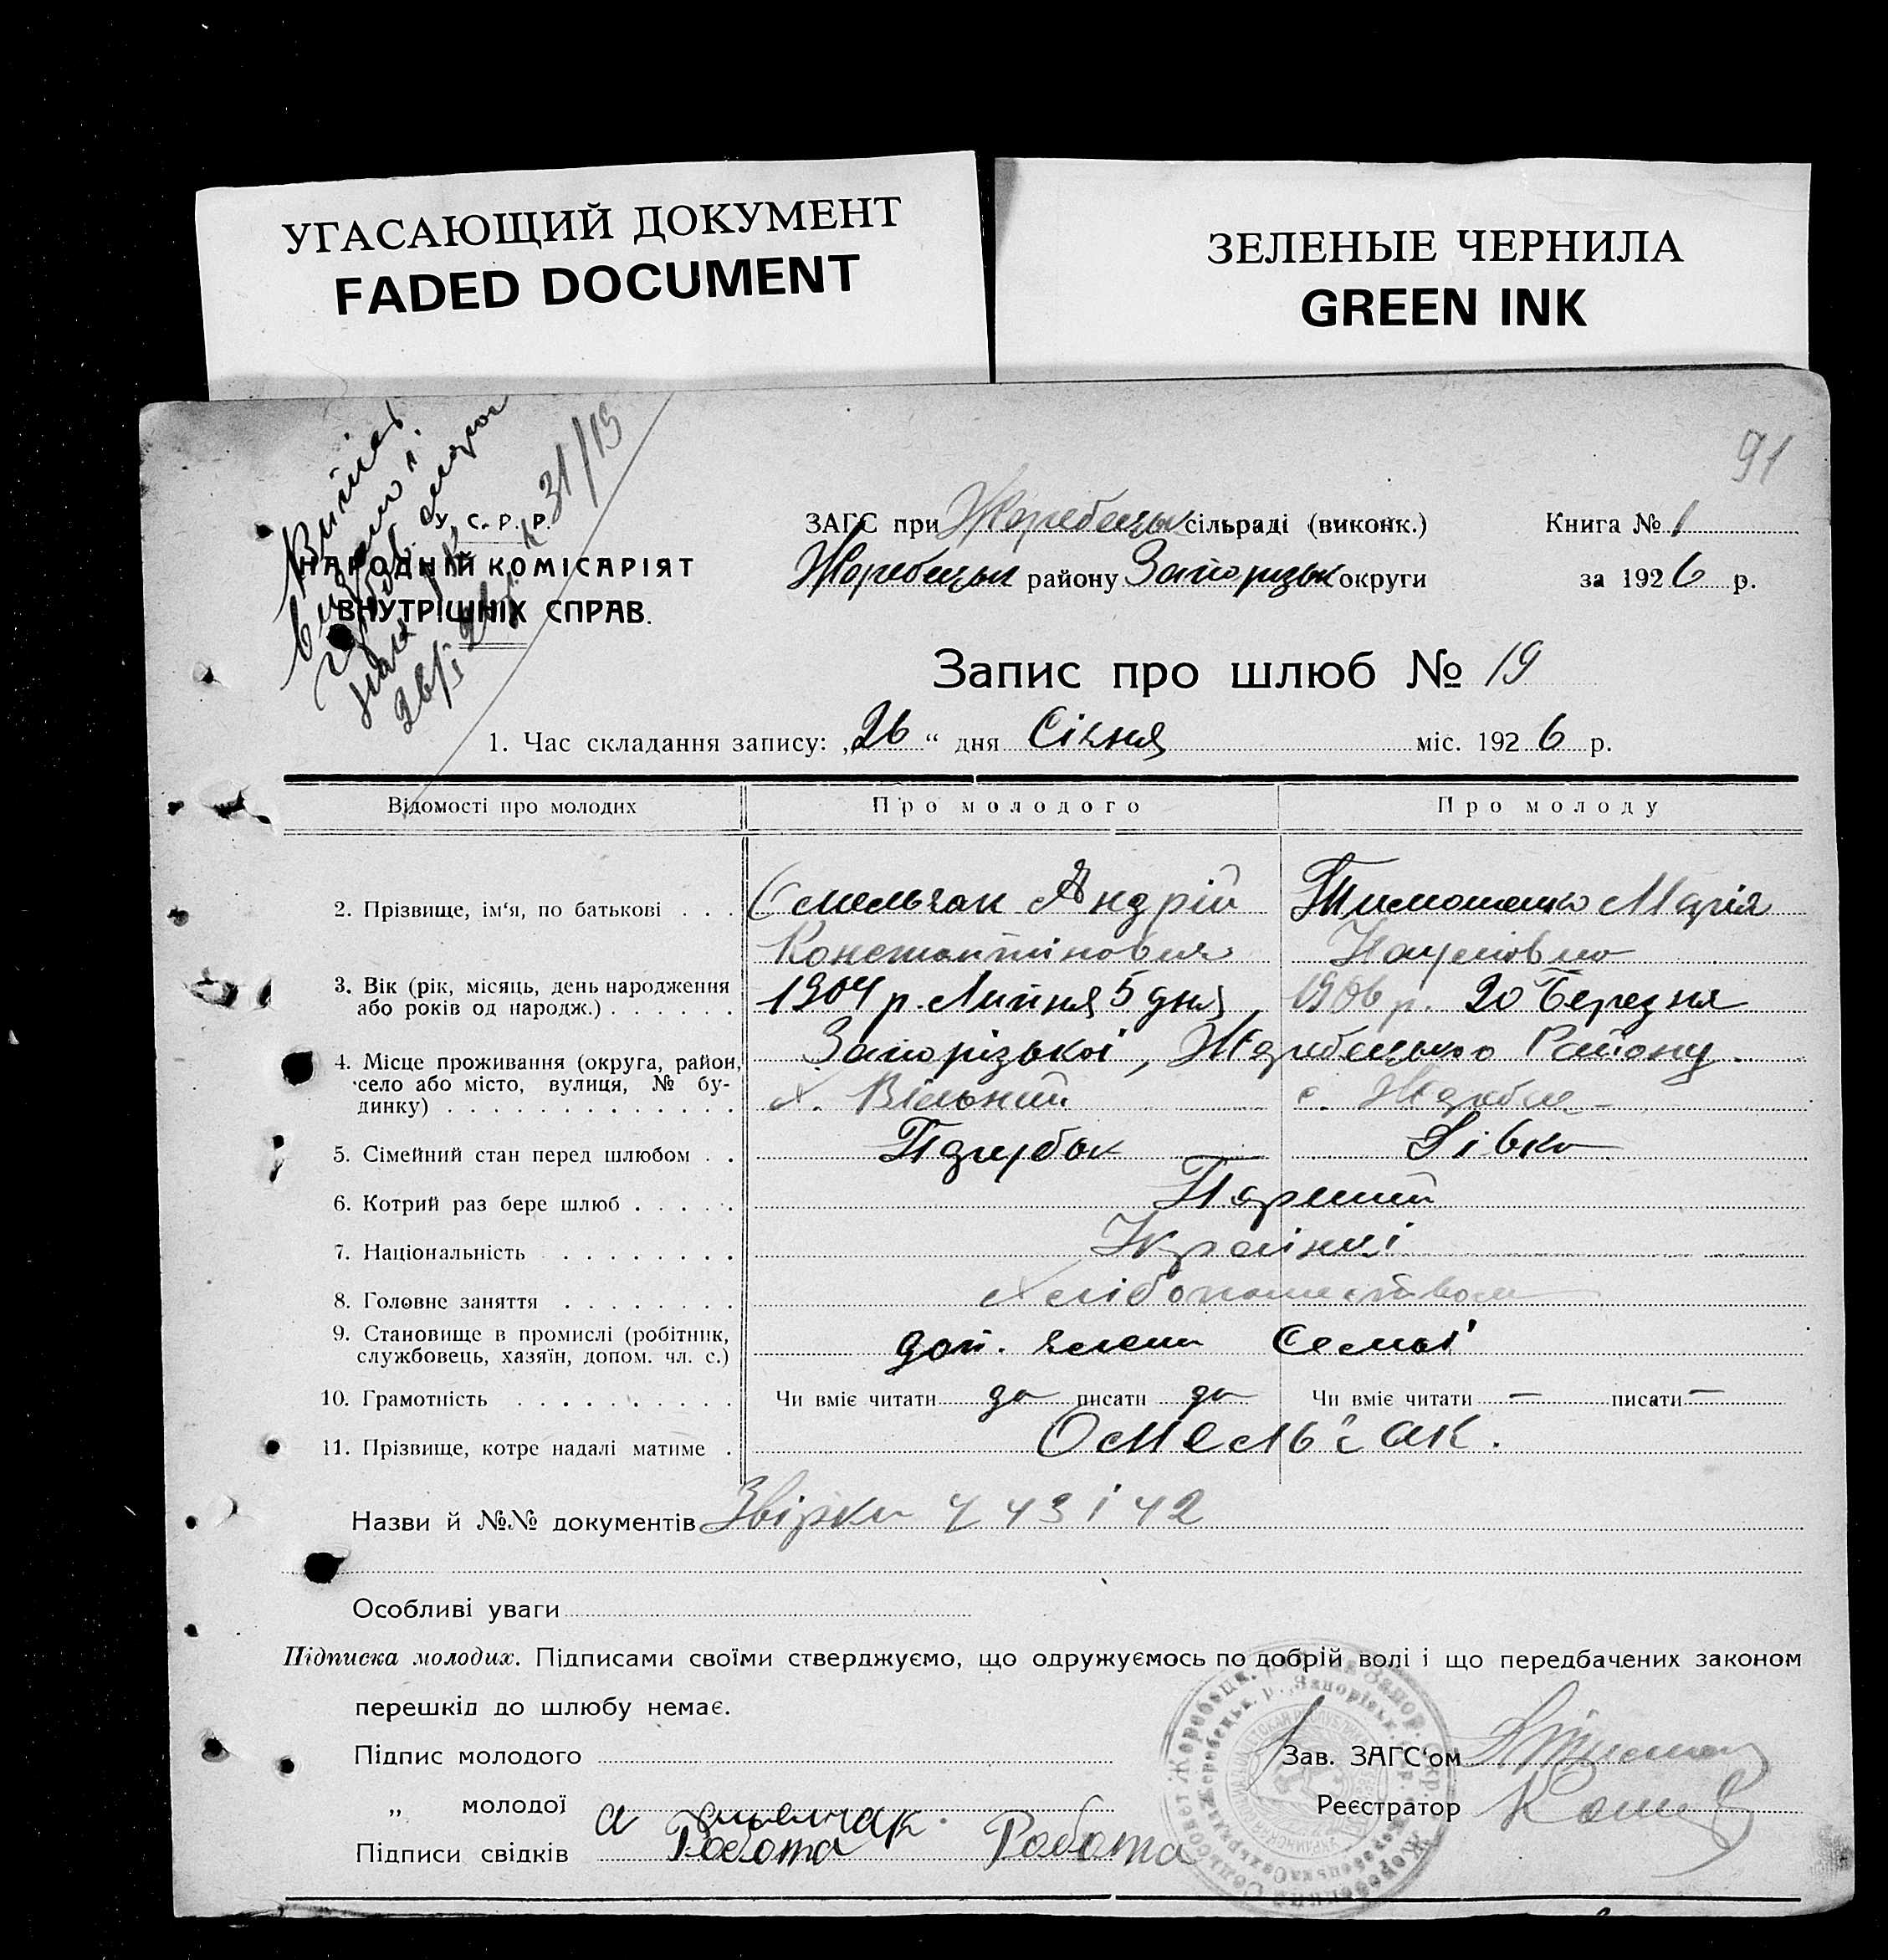 УГАСАЮЩИЙ ДОКУМЕНТ
FADED DOCUMENT
ЗЕЛЕНЫЕ ЧЕРНИЛА
GREEN INK
91
31/13
У. С. Р. Р.
НАРОДНІЙ КОМІСАРІЯТ
ВНУТРІШНІХ СПРАВ.
ЗАГС при Жеребецьк сільраді (виконк.) Книга № 1
Жеребецьк району Запорізьк округи за 1926 р.
Запис про шлюб № 19
1. Час складання запису: „26“ дня Січня міс. 1926 р.
Відомості про молодих Про молодого Про молоду
2. Прізвище, ім'я, по батькові . . . Омельчак Андрій Тимошенко Марія
Константінович Наумовна
3. Вік (рік, місяць, день народження 1904 р. Липня 5 дня 1906 р. 20 Березня
або років од народж.) . . . . . .
4. Місце проживання (округа, район, Запорізької, Жеребецького Району.
село або місто, вулиця, № бу- х. Вільний с. Жеребец
динку) . . . . . . . . . . . . .
5. Сімейний стан перед шлюбом . . Парубок Дівка
6. Котрий раз бере шлюб . . . . . Перший
7. Національність . . . . . . . . Українці
8. Головне заняття . . . . . . . . Хлібопашеством
9. Становище в промислі (робітник, доп. члени семьї
службовець, хазяїн, допом. чл. с.)
10. Грамотність . . . . . . . . . . Чи вміє читати да писати да Чи вміє читати — писати —
11. Прізвище, котре надалі матиме . Омельчак.
Назви й №№ документів Звірки 443 і 42
Особливі уваги
Підписка молодих. Підписами своїми стверджуємо, що одружуємось по добрій волі і що передбачених законом
перешкід до шлюбу немає.
Підпис молодого Зав. ЗАГС'ом
„ молодої а Омельчак. Реєстратор
Підписи свідків Робота Робота